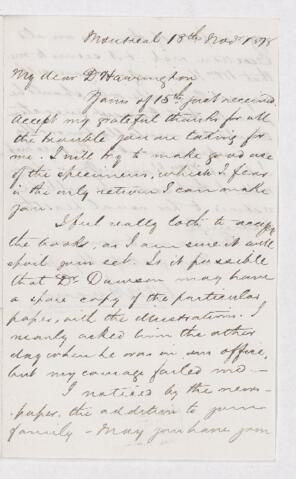 Montreal 18th Novr 1878
My dear Dr Harrington
Yours of 15th just received
accept my grateful thanks for all
the trouble you are taking for
me. I will try to make good use
of the specimens, which I fear
is the only return I can make
you.
I feel really loth to accept
the books, as I am sure it will
spoil your set. Is it possible
that Dr Dawson may have
a spare copy of the particular
paper, with the illustration. I
nearly asked him the other
day when he was in our office,
but my courage failed me —
I noticed by the news-
-paper, the addition to your
family — May you have